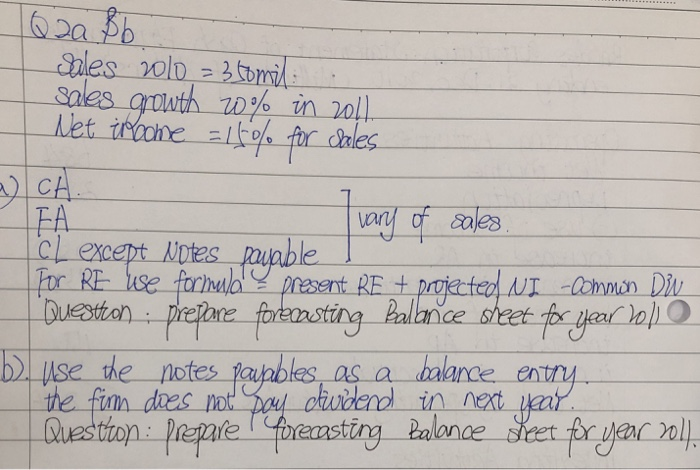 Q2a & b.
Sales 2010 = 350mil.
Sales growth 20% in 2011.
Net income = 15% for sales
a) CA.
FA
CL except Notes payable
] vary of sales.
For RE use formula = present RE + projected NI - Common Div
Question : prepare forecasting Ballance sheet for year 2011
b). Use the notes payables as a balance entry.
the firm does not pay dividend in next year.
Question : Prepare forecasting Balance sheet for year 2011.